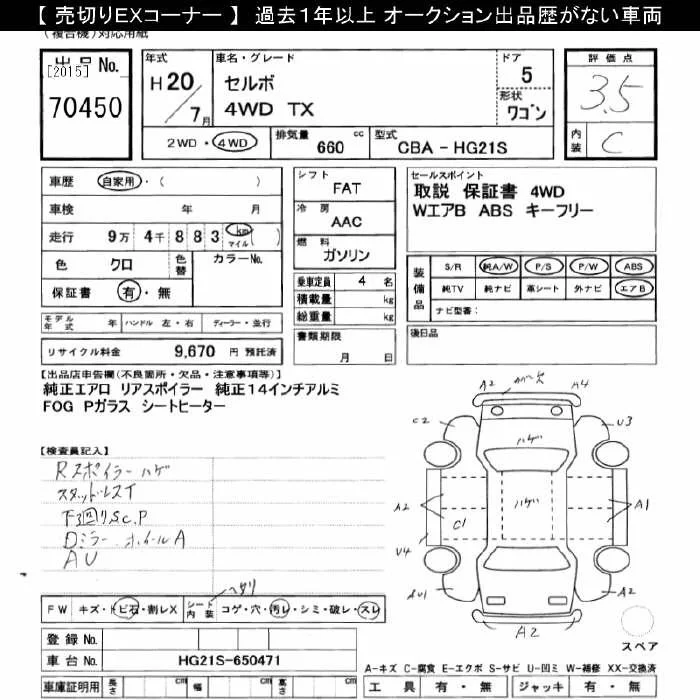 【 売切りEXコーナー 】 過去1年以上 オークション出品歴がない車両
(複合機)対応用紙
出品No.
[2015]
70450
年式
H20/7月
車名・グレード
セルボ
4WD TX
ドア
5
形状
ワゴン
2WD・4WD
排気量 660 cc
型式 CBA - HG21S
評価点
3.5
内装 C
車歴 自家用・( )
車検 年 月
走行 9万 4千 8 8 3 km マイル ( )
色 クロ 色替 カラーNo.
保証書 有・無
モデル年式 年 ハンドル 左・右 ディーラー・並行
リサイクル料金 9,670 円 預託済
シフト
FAT
冷房
AAC
燃料
ガソリン
乗車定員 4 名
積載量 kg
総重量 kg
書類期限
月 日
セールスポイント
取説 保証書 4WD
WエアB ABS キーフリー
装備品
S/R 純A/W P/S P/W ABS
純TV 純ナビ 革シート 外ナビ エアB
ナビ型番:
後日品
【出品店申告欄(不良箇所・欠品・注意事項等)】
純正エアロ リアスポイラー 純正14インチアルミ
FOG Pガラス シートヒーター
【検査員記入】
Rスポイラーハゲ
スタッドレスT
下廻りS.C.P
Dミラー ホイールA
AU
A2 カバー欠 A4
C2 U3
ハゲ
ハゲ
A2 C1 A1
U4
AU1 A2
A2
スペア
FW キズ・トビ石・割レX シート内装 コゲ・穴・汚レ・シミ・破レ・スレ
ヘタリ
登録No.
車台No. HG21S-650471
車庫証明用 長さ cm 幅 cm 高さ cm
A-キズ C-腐食 E-エクボ S-サビ U-凹ミ W-補修 XX-交換済
工具 有・無 ジャッキ 有・無